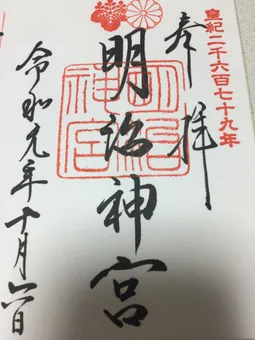 皇紀二千六百七十九年
奉拝
明治神宮
明治神宮
令和元年十月六日